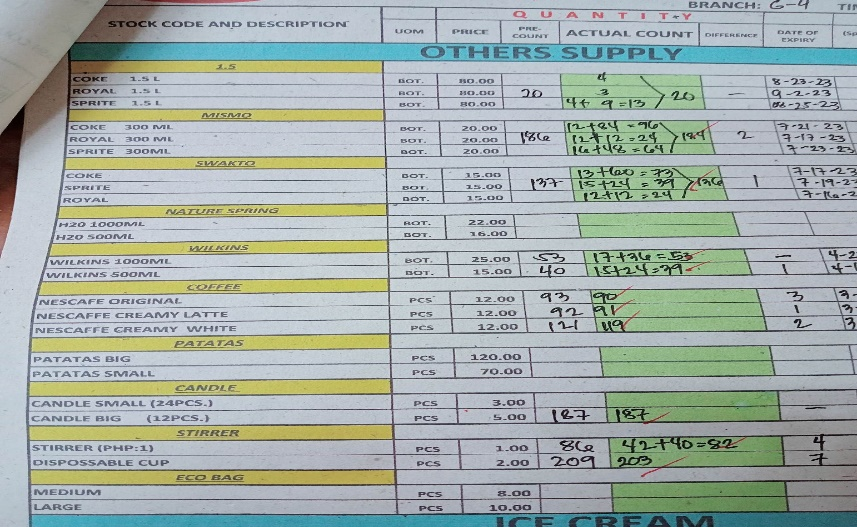 BRANCH: G-4 TI
STOCK CODE AND DESCRIPTION UOM PRICE QUANTITY PRE-COUNT ACTUAL COUNT DIFFERENCE DATE OF EXPIRY (Sp
OTHERS SUPPLY
1.5
COKE 1.5 L BOT. 80.00 4 8-23-23
ROYAL 1.5 L BOT. 80.00 20 3 20 — 9-2-23
SPRITE 1.5 L BOT. 80.00 4+ 9 =13 08-25-23
MISMO
COKE 300 ML BOT. 20.00 12+84 = 96 7-21-23
ROYAL 300 ML BOT. 20.00 186 12+12 = 24 184 2 7-17-23
SPRITE 300ML BOT. 20.00 16+48 = 64 7-23-23
SWAKTO
COKE BOT. 15.00 13+60 = 73 7-17-23
SPRITE BOT. 15.00 137 15+24 = 39 136 1 7-19-2
ROYAL BOT. 15.00 12+12 = 24 7-16-2
NATURE SPRING
H20 1000ML BOT. 22.00
H20 500ML BOT. 16.00
WILKINS
WILKINS 1000ML BOT. 25.00 53 17+36 = 53 — 4-2
WILKINS 500ML BOT. 15.00 40 15+24 = 39 1 4-1
COFFEE
NESCAFE ORIGINAL PCS 12.00 93 90 3 3-
NESCAFFE CREAMY LATTE PCS 12.00 92 91 1 3
NESCAFFE CREAMY WHITE PCS 12.00 121 119 2 3
PATATAS
PATATAS BIG PCS 120.00
PATATAS SMALL PCS 70.00
CANDLE
CANDLE SMALL (24PCS.) PCS 3.00
CANDLE BIG (12PCS.) PCS 5.00 187 187 —
STIRRER
STIRRER (PHP:1) PCS 1.00 86 42+40=82 4
DISPOSSABLE CUP PCS 2.00 209 203 7
ECO BAG
MEDIUM PCS 8.00
LARGE PCS 10.00
ICE CREAM